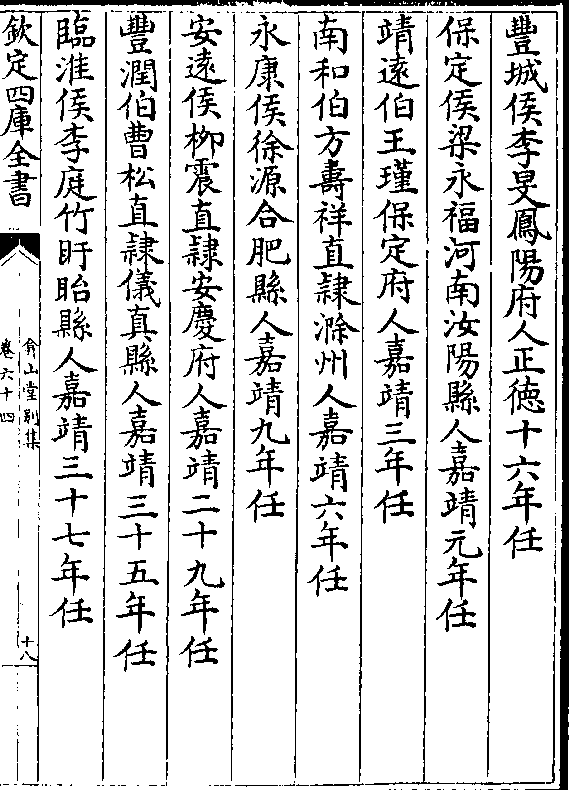 豐城侯李旻鳳陽府人正德十六年任
保定侯梁永福河南汝陽縣人嘉靖元年任
靖遠伯王瑾保定府人嘉靖三年任
南和伯方壽祥直隷滁州人嘉靖六年任
永康侯徐源合肥縣人嘉靖九年任
安遠侯柳震直隷安慶府人嘉靖二十九年任
豐潤伯曹松直隷儀真縣人嘉靖三十五年任
臨淮侯李庭竹盱眙縣人嘉靖三十七年任
欽定四庫全書
弇山堂别集
卷六十四
十八